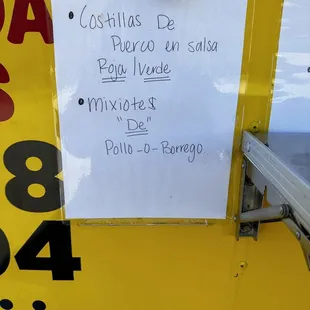 DA
S
8
04
• Costillas De
Puerco en salsa
Roja / Verde
• Mixiotes
"De"
Pollo -o- Borrego